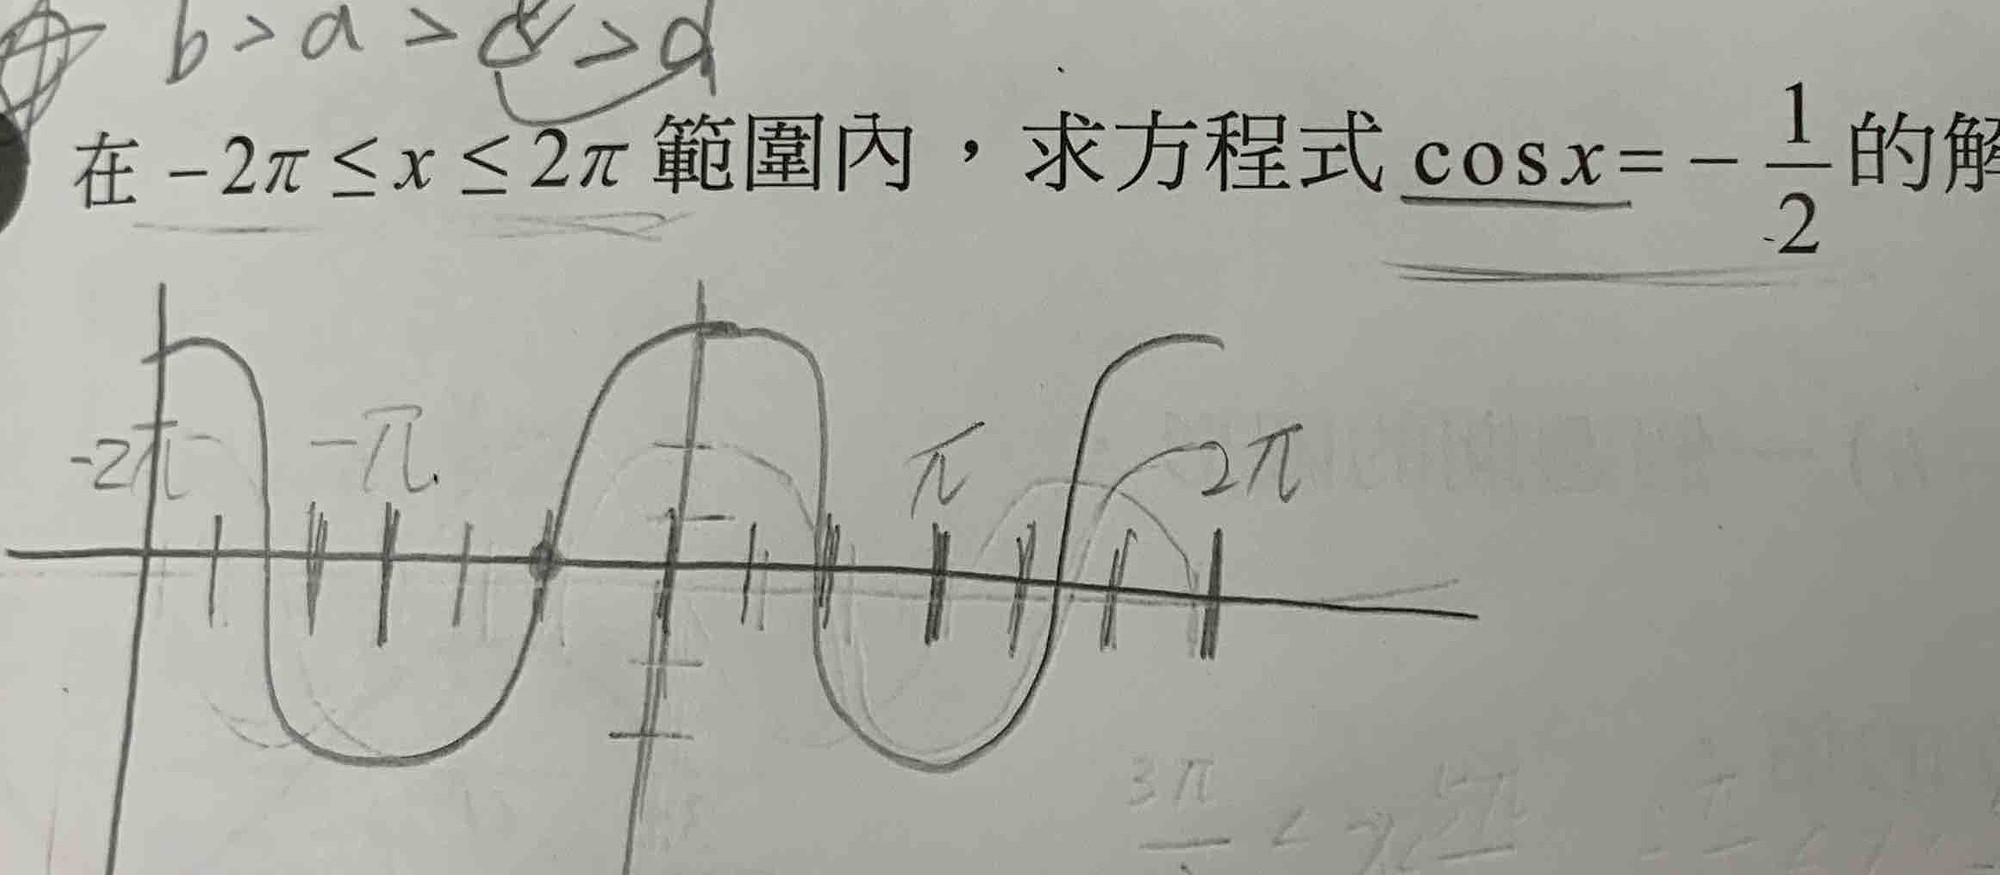 b > a > c > d
在 -2π ≤ x ≤ 2π 範圍內，求方程式 cosx = -1/2 的解
-2π -π π 2π
3π < x